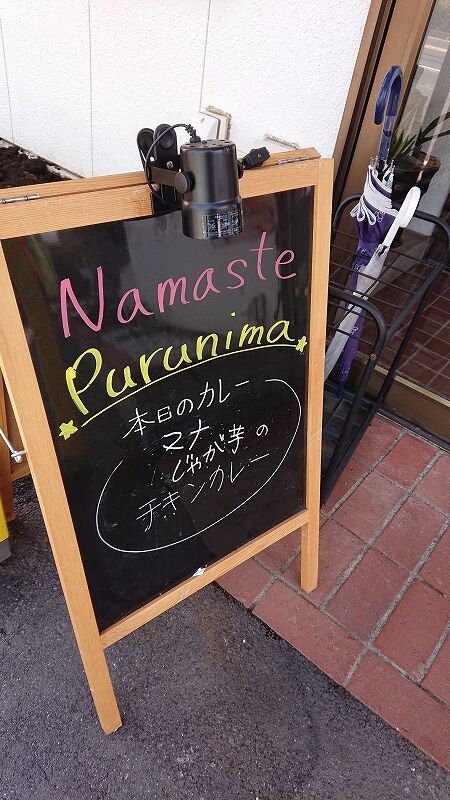 Namaste
Purunima
本日のカレー
マナ
じゃが芋の
チキンカレー